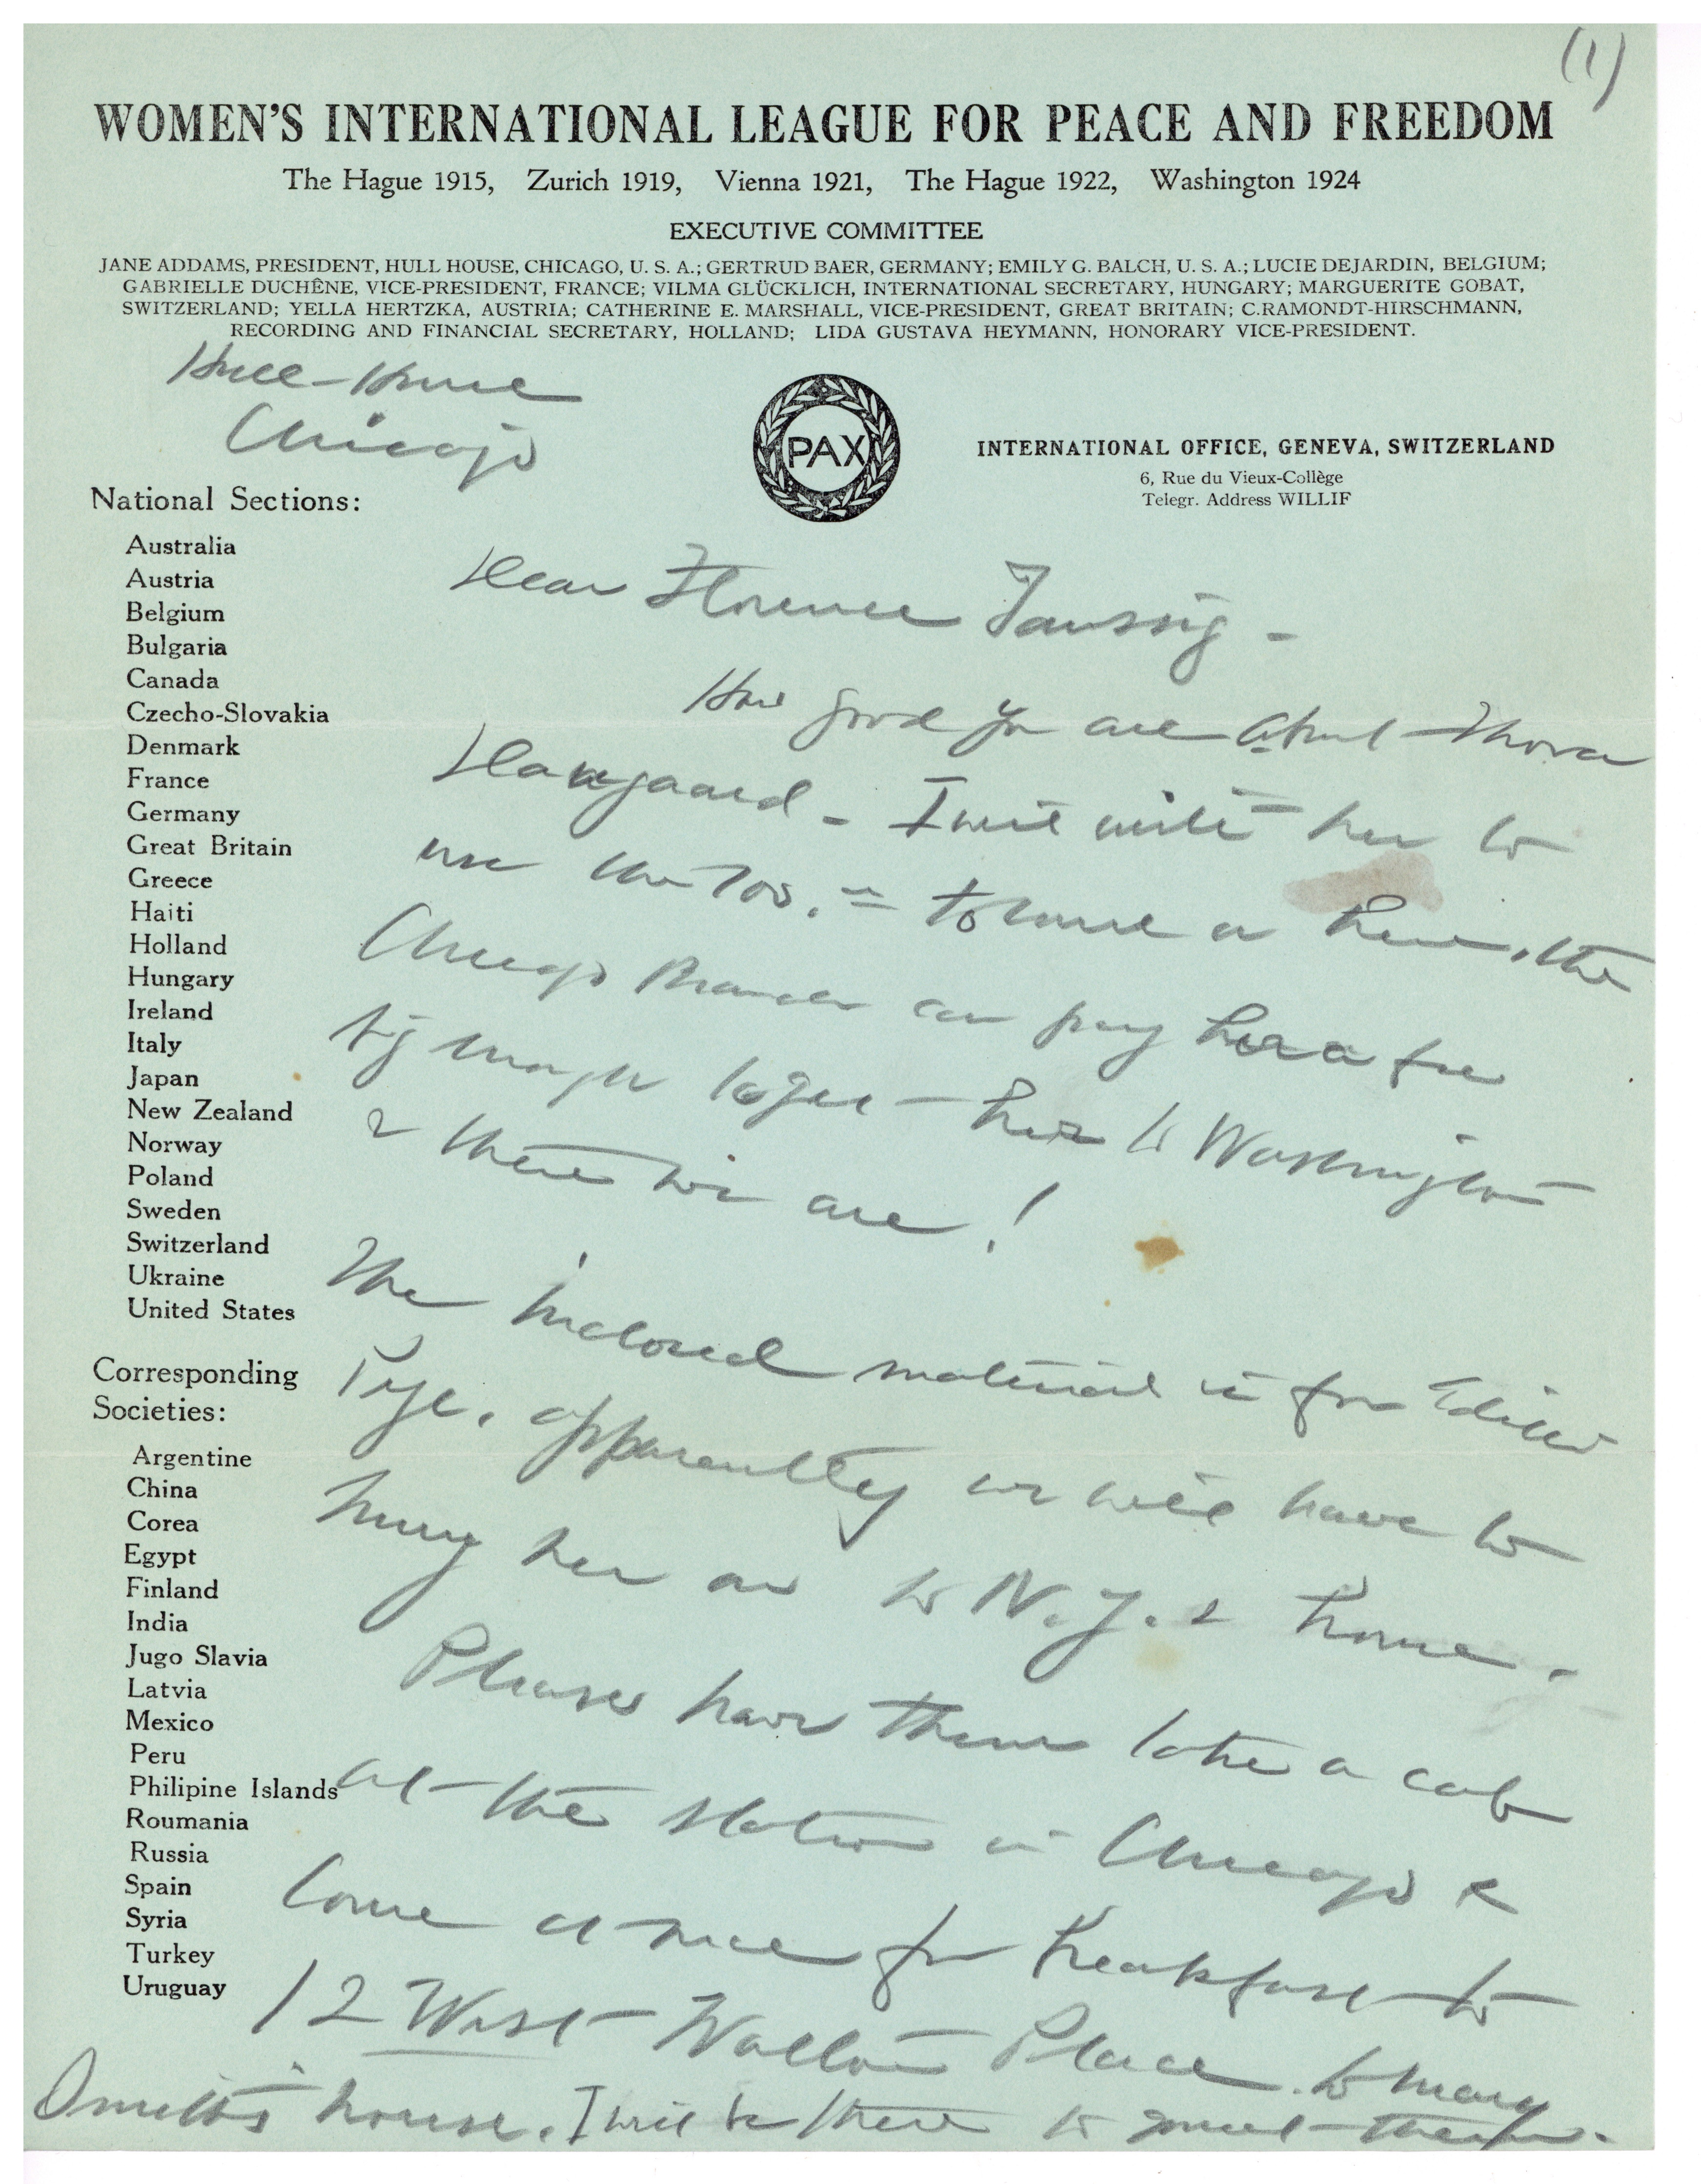 (1)
WOMEN'S INTERNATIONAL LEAGUE FOR PEACE AND FREEDOM
The Hague 1915, Zurich 1919, Vienna 1921, The Hague 1922, Washington 1924
EXECUTIVE COMMITTEE
JANE ADDAMS, PRESIDENT, HULL HOUSE, CHICAGO, U. S. A.; GERTRUD BAER, GERMANY; EMILY G. BALCH, U. S. A.; LUCIE DEJARDIN, BELGIUM;
GABRIELLE DUCHÊNE, VICE-PRESIDENT, FRANCE; VILMA GLÜCKLICH, INTERNATIONAL SECRETARY, HUNGARY; MARGUERITE GOBAT,
SWITZERLAND; YELLA HERTZKA, AUSTRIA; CATHERINE E. MARSHALL, VICE-PRESIDENT, GREAT BRITAIN; C.RAMONDT-HIRSCHMANN,
RECORDING AND FINANCIAL SECRETARY, HOLLAND; LIDA GUSTAVA HEYMANN, HONORARY VICE-PRESIDENT.
Hull-House
Chicago
PAX
INTERNATIONAL OFFICE, GENEVA, SWITZERLAND
6, Rue du Vieux-Collège
Telegr. Address WILLIF
National Sections:
Australia
Austria
Belgium
Bulgaria
Canada
Czecho-Slovakia
Denmark
France
Germany
Great Britain
Greece
Haiti
Holland
Hungary
Ireland
Italy
Japan
New Zealand
Norway
Poland
Sweden
Switzerland
Ukraine
United States
Corresponding
Societies:
Argentine
China
Corea
Egypt
Finland
India
Jugo Slavia
Latvia
Mexico
Peru
Philipine Islands
Roumania
Russia
Spain
Syria
Turkey
Uruguay
Dear Florence Taussig -
How good you are about Thora
Daugaard - I will write her to
use the 70$.= to come on here, the
Chicago Branch can pay her a fee
big enough to get her to Washington
& there we are!
The inclosed material is for Edith
Pye. apparently we will have to
hurry her on to N.Y. & home.
Please have them take a cab
at the station in Chicago &
come at once for breakfast to
12 West Walton Place. to Mary
Smith's house. I will be there to meet them.